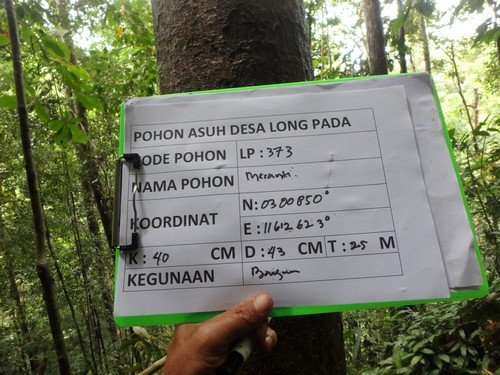 POHON ASUH DESA LONG PADA
KODE POHON LP : 373
NAMA POHON Meranti
KOORDINAT N: 0300850°
E : 1161262 3°
K : 40 CM D : 43 CM T : 25 M
KEGUNAAN Bangunan